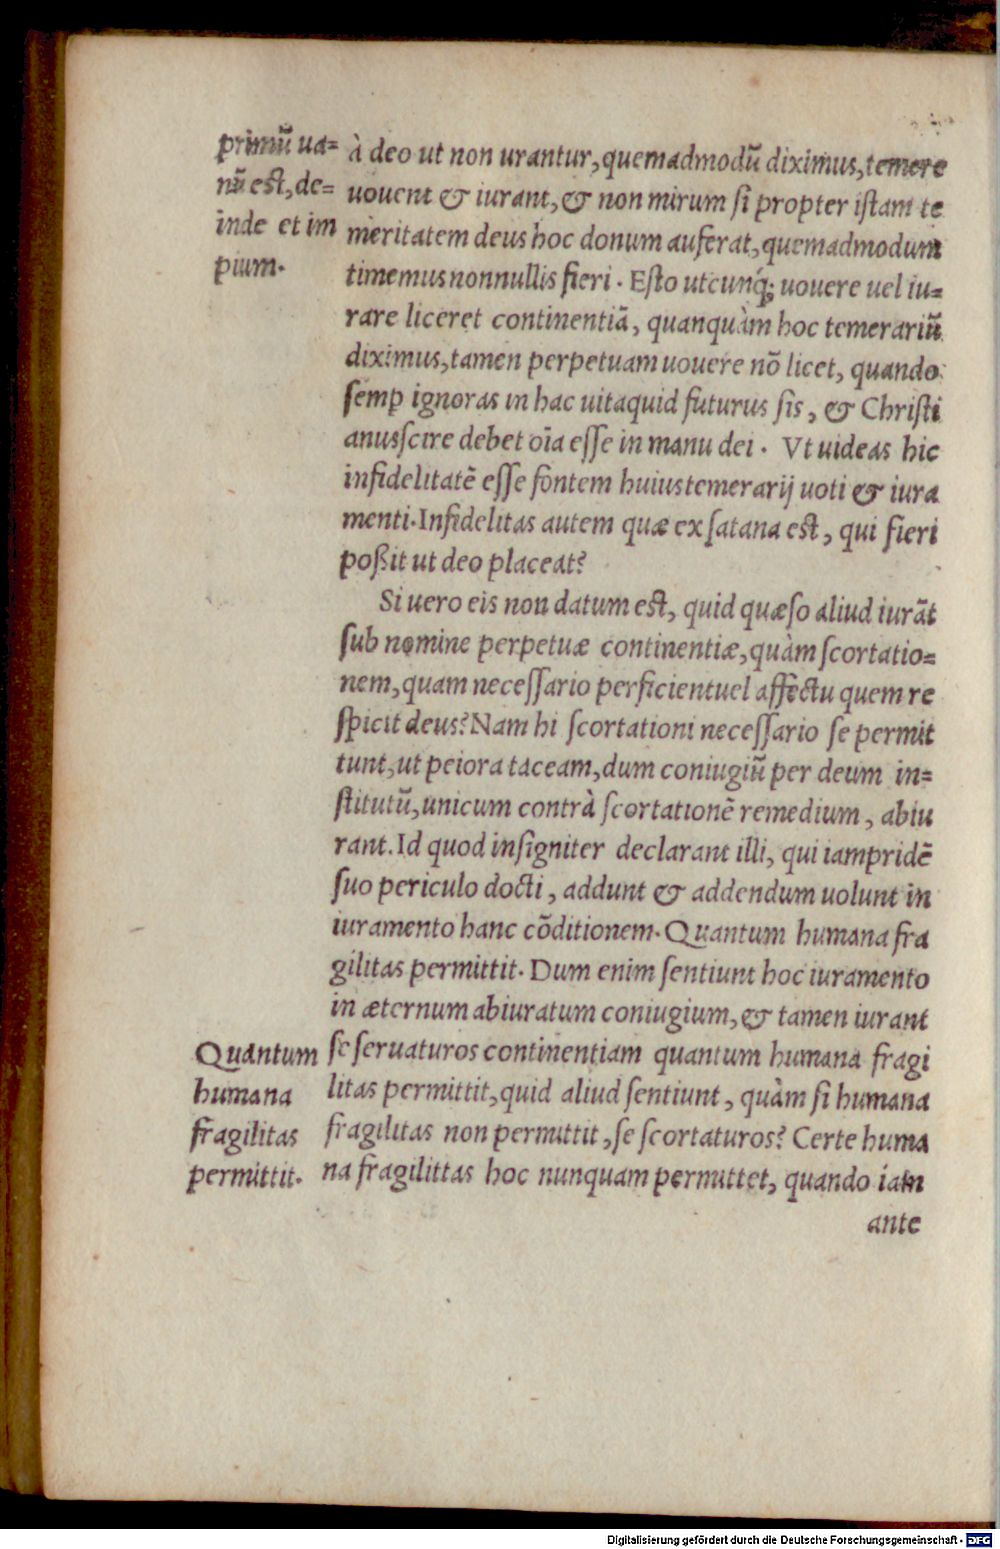 primũ ua=
nũ est, de=
inde et im
pium.
à deo ut non urantur, quemadmodũ diximus, temere
uouent & iurant, & non mirum si propter istam te
meritatem deus hoc donum auferat, quemadmodum
timemus nonnullis fieri. Esto utcunq́; uouere uel iu=
rare liceret continentiã, quanquàm hoc temerariũ
diximus, tamen perpetuam uouere nõ licet, quando
semp ignoras in hac uitaquid futurus sis, & Christi
anus scire debet oĩa esse in manu dei. Vt uideas hic
infidelitatẽ esse fontem huius temerarij uoti & iura
menti. Infidelitas autem quæ ex satana est, qui fieri
poßit ut deo placeat?
Si uero eis non datum est, quid quæso aliud iurãt
sub nomine perpetuæ continentiæ, quàm scortatio=
nem, quam necessario perficient uel affectu quem re
spicit deus? Nam hi scortationi necessario se permit
tunt, ut peiora taceam, dum coniugiũ per deum in=
stitutũ, unicum contrà scortationẽ remedium, abiu
rant. Id quod insigniter declarant illi, qui iampridẽ
suo periculo docti, addunt & addendum uolunt in
iuramento hanc cõditionem. Quantum humana fra
gilitas permittit. Dum enim sentiunt hoc iuramento
in æternum abiuratum coniugium, & tamen iurant
se seruaturos continentiam quantum humana fragi
litas permittit, quid aliud sentiunt, quàm si humana
fragilitas non permittit, se scortaturos? Certe huma
na fragilittas hoc nunquam permittet, quando iam
Quantum
humana
fragilitas
permittit.
ante
Digitalisierung gefördert durch die Deutsche Forschungsgemeinschaft - DFG